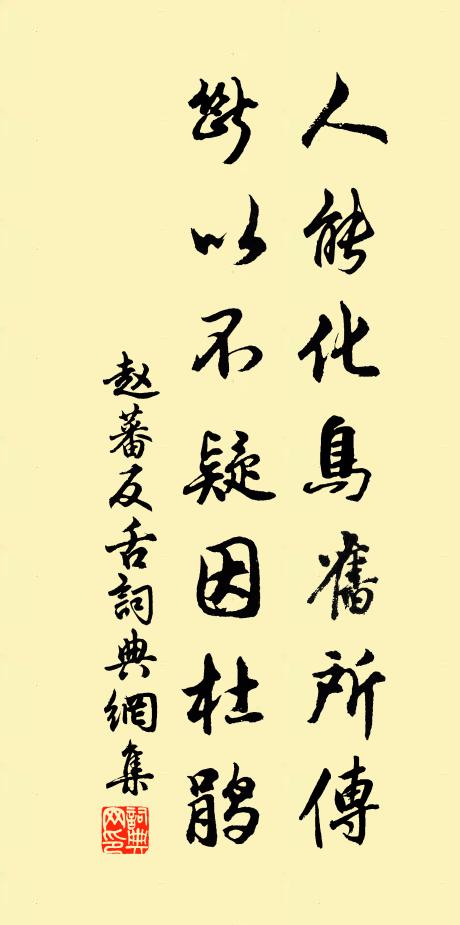 人能化鳥舊所傳
斷以不疑因杜鵑
赵蕃反舌詞典網集
詞典网印